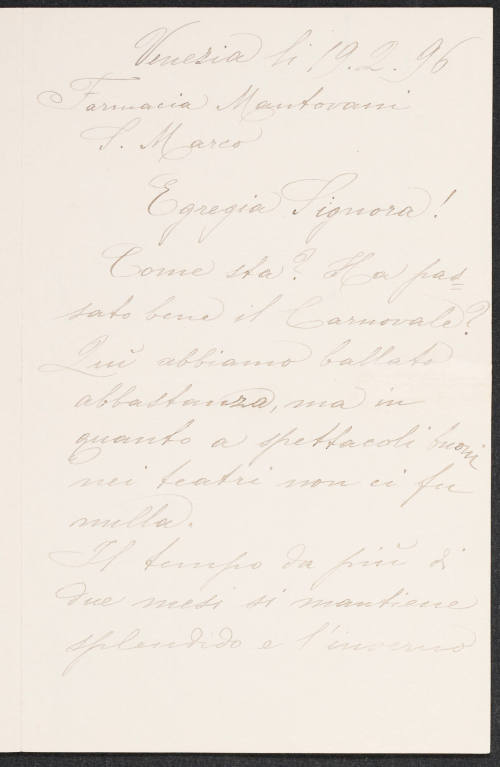 Venezia li 19.2.96
Farmacia Mantovani
S. Marco
Egregia Signora!
Come sta? Ha pas=
sato bene il Carnovale?
Quì abbiamo ballato
abbastanza, ma in
quanto a spettacoli buoni
nei teatri non ci fu
nulla.
Il tempo da più di
due mesi si mantiene
splendido e l'inverno